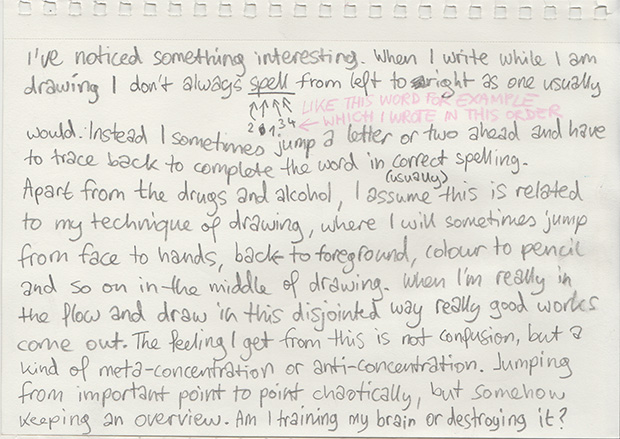 I've noticed something interesting. When I write while I am
drawing I don't always spell from left to right as one usually
LIKE THIS WORD FOR EXAMPLE
2 1 3 4 ← WHICH I WROTE IN THIS ORDER
would. Instead I sometimes jump a letter or two ahead and have
to trace back to complete the word in correct spelling.
(usually)
Apart from the drugs and alcohol, I assume this is related
to my technique of drawing, where I will sometimes jump
from face to hands, back to foreground, colour to pencil
and so on in the middle of drawing. When I'm really in
the flow and draw in this disjointed way really good works
come out. The feeling I get from this is not confusion, but a
kind of meta-concentration or anti-concentration. Jumping
from important point to point chaotically, but somehow
keeping an overview. Am I training my brain or destroying it?